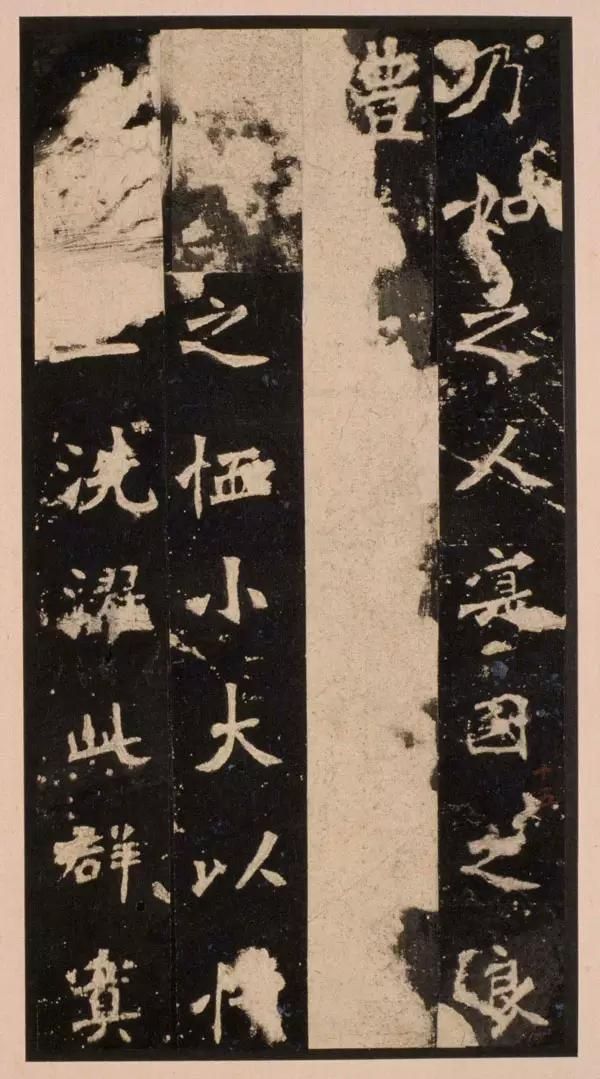 乃如之人寔國之良
豊
之恤小大以
一洗濯此群冥